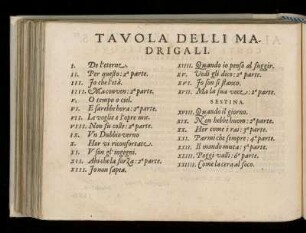 TAVOLA DELLI MA-
DRIGALI.
I. De l'eterne
II. Per questo: 2ª parte.
III. Io che l'età
IIII. Ma convien: 2ª parte.
V. O tempo o ciel.
VI. E sarebbe hora: 2ª parte.
VII. La voglie e l'opre mie.
VIII. Non fu caste: 2ª parte.
IX. Un Dubbio verno
X. Hor vi riconfortate
XI. V son gl'ingegni.
XII. Ahi che la forza: 2ª parte.
XIII. Io non sapea.
XIIII. Quando io penso al fuggir.
XV. Vedi gli dico: 2ª parte.
XVI. Io son si stanco.
XVII. Ma la sua voce: 2ª parte.
SESTINA.
XVIII. Quando il giorno.
XIX. Non hebbe huom: 2ª parte.
XX. Hor come i rai: 3ª parte.
XXI. Parmi che sempre: 4ª parte.
XXII. Il mondo muta: 5ª parte.
XXIII. Poggi valli: 6ª parte.
XXIIII. Come la cera al foco.